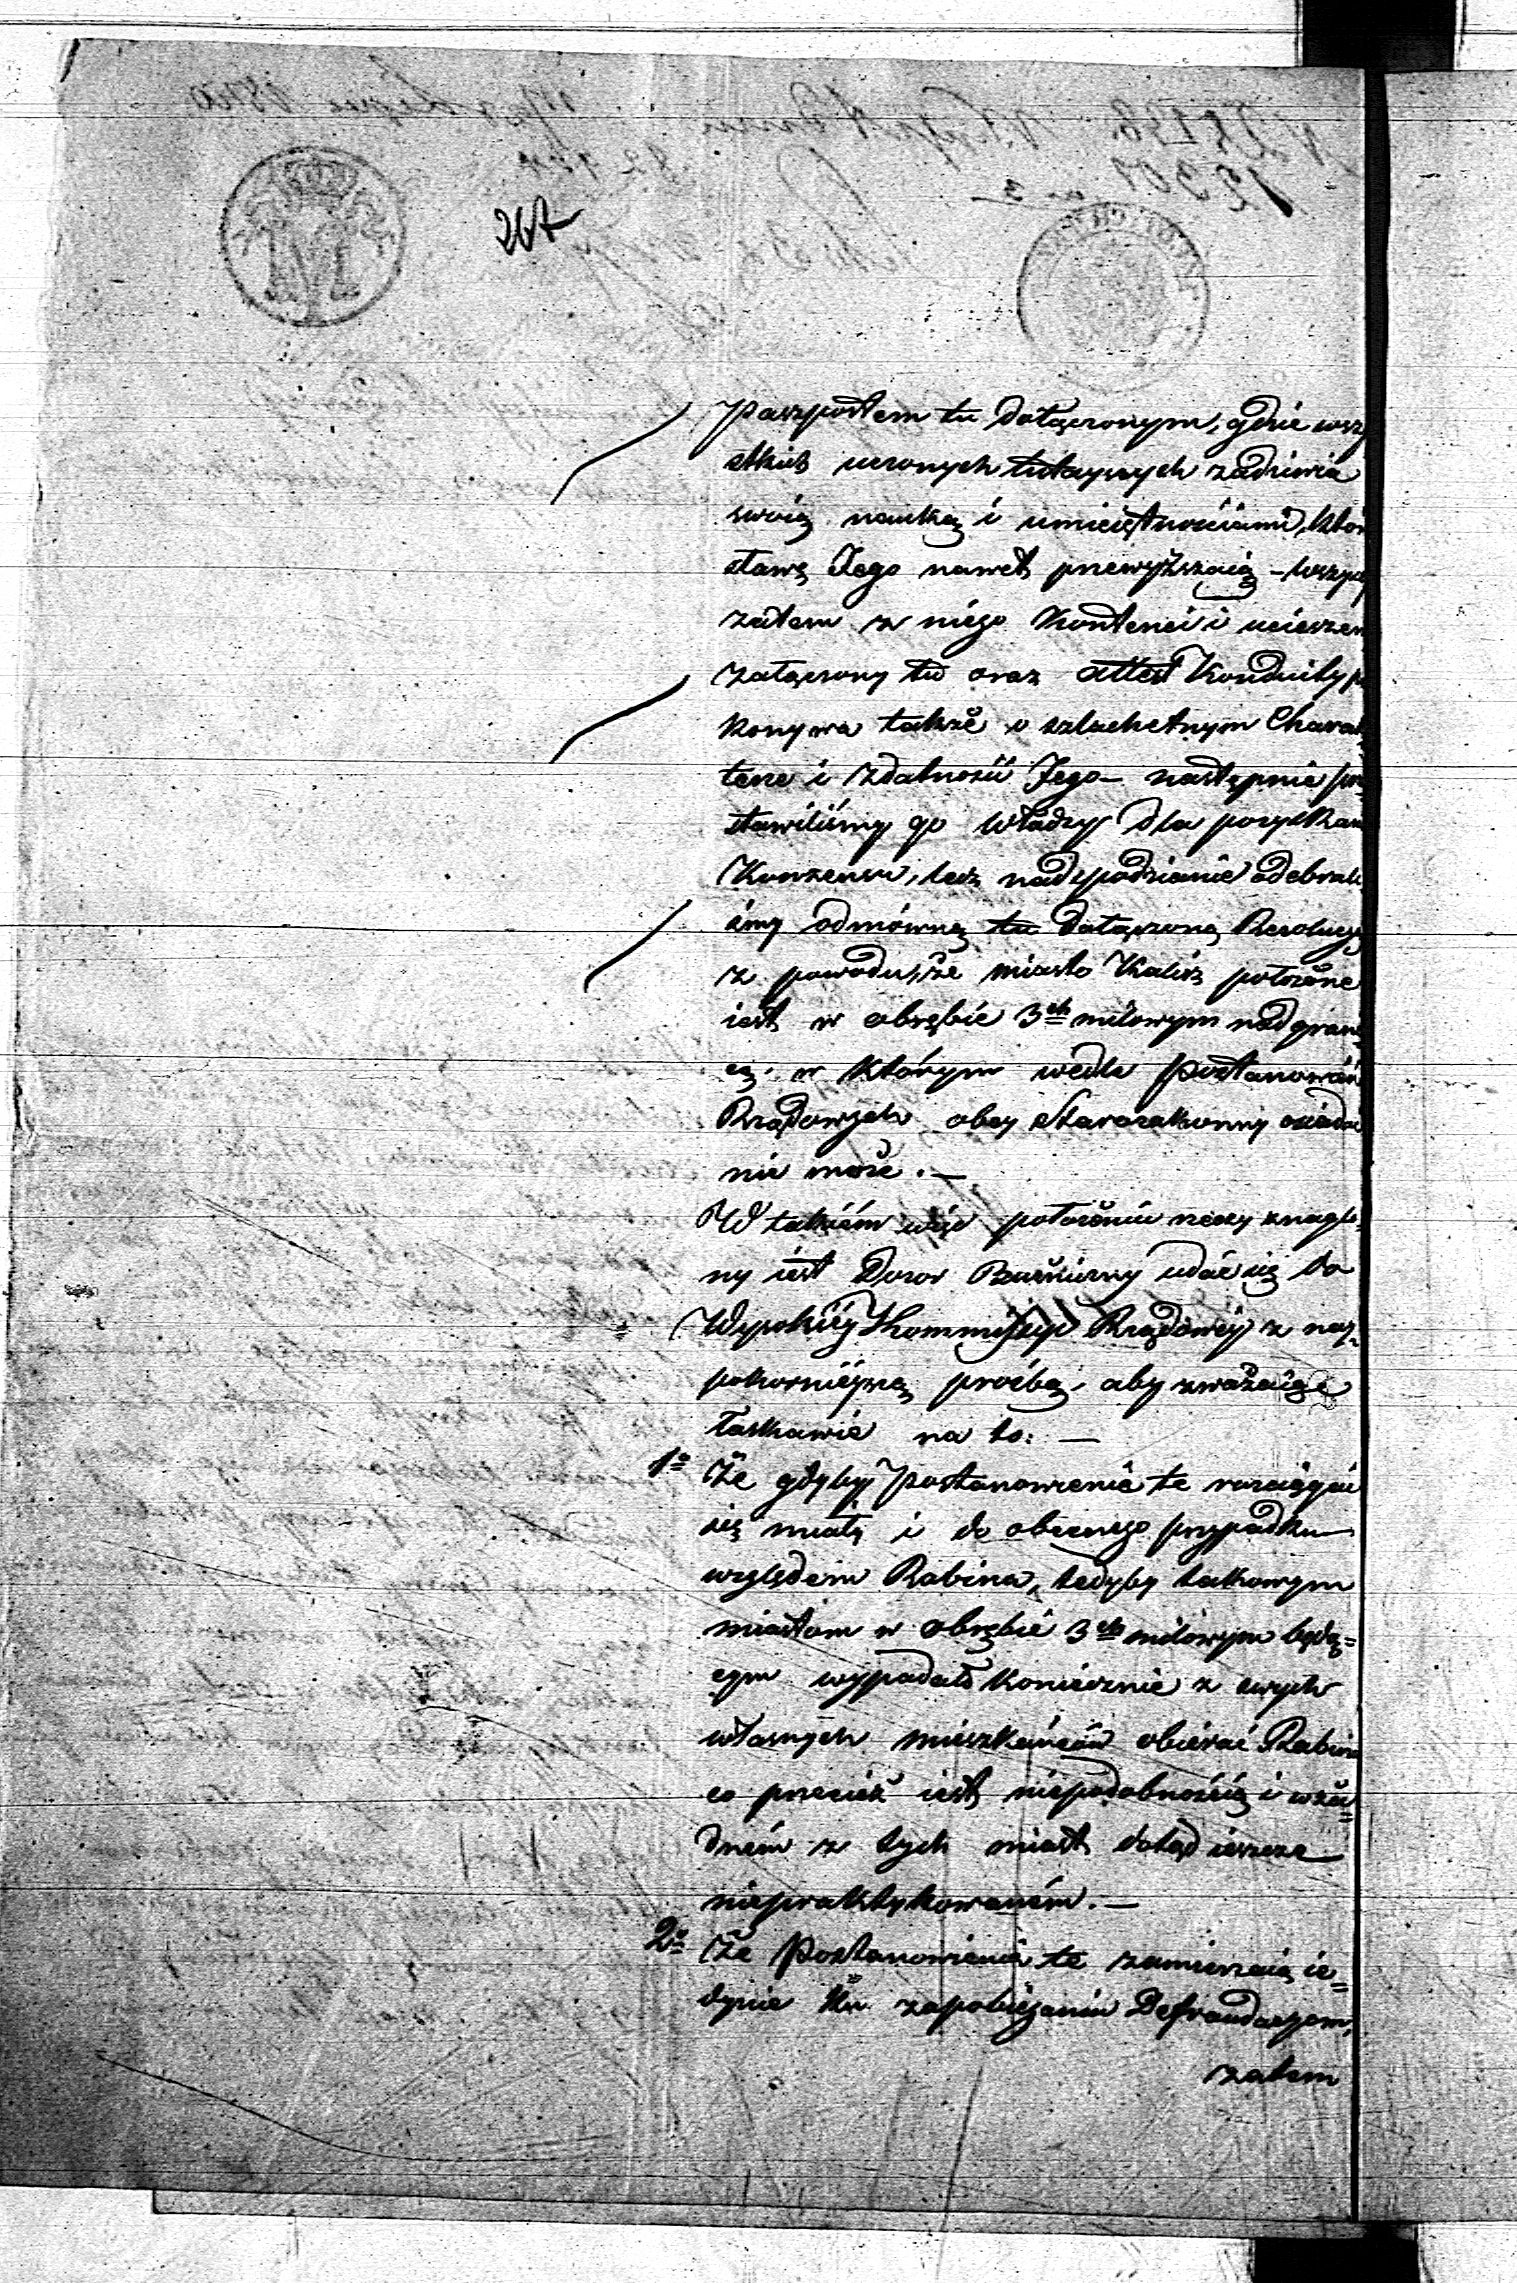 267
Paszportem tu dołączonym, gdzie wszy
stkich uczonych tutayszych zadziwia
swoią nauką i umieiętnościami, któr
sławę Jego nawet przewyższaią - wszys
zatem z niego kontenci i ucieszen
załączony tu oraz attest Konduity p
konywa także o szlachetnym Charak
terze i zdatności Jego - następnie prze
stawiliśmy go Władzy dla pozyskan
Konsensu, lecz nadspodzianie odebrali
śmy odmówną tu dołączoną Rezolucyą
z powodu, że miasto Kalisz położone
iest w obrębie 3ch milowym nad grani
cą, w którym wedle postanowień
Rządowych obcy Starozakonny osiadać
nie może. —
W takiém więc położeniu rzeczy znaglo
ny iest Dozor Bużniczny udać się do
Wysokiéy Kommissyi Rządowéy z nay-
pokornieyszą prośbą, aby zważaiąc
łaskawie na to. —
1o Że gdyby postanowienia te rozciągać
się miały i do obecnego przypadku
względem Rabina, tedyby takowym
miastom w obrębie 3ch milowym będą=
cym wypadało koniecznie z swych
własnych mieszkańców obierać Rabina
co przecież iest niepodobnością i w ża=
dném z tych miast dotąd ieszcze
niepraktykowaném. —
2o Że Postanowienia te zamierzaią ie=
dynie ku zapobieżeniu Defraudacyom,
zatem